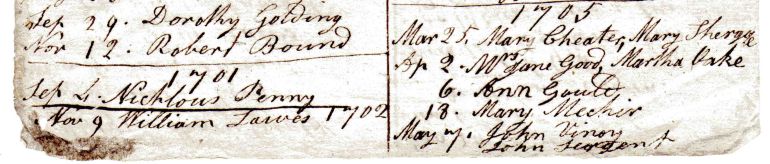 Sep 29. Dorothy Golding
Nov 12. Robert Bound
1701
Sep 4. Nicklous Penny
Nov 9 William Lawes 1702
1705
Mar 25. Mary Cheater, Mary
Ap 2. Mrs Jane Good, Martha Vake
6. Ann Gould
18. Mary Mechir
May 7. John Vinoy
John Sergent